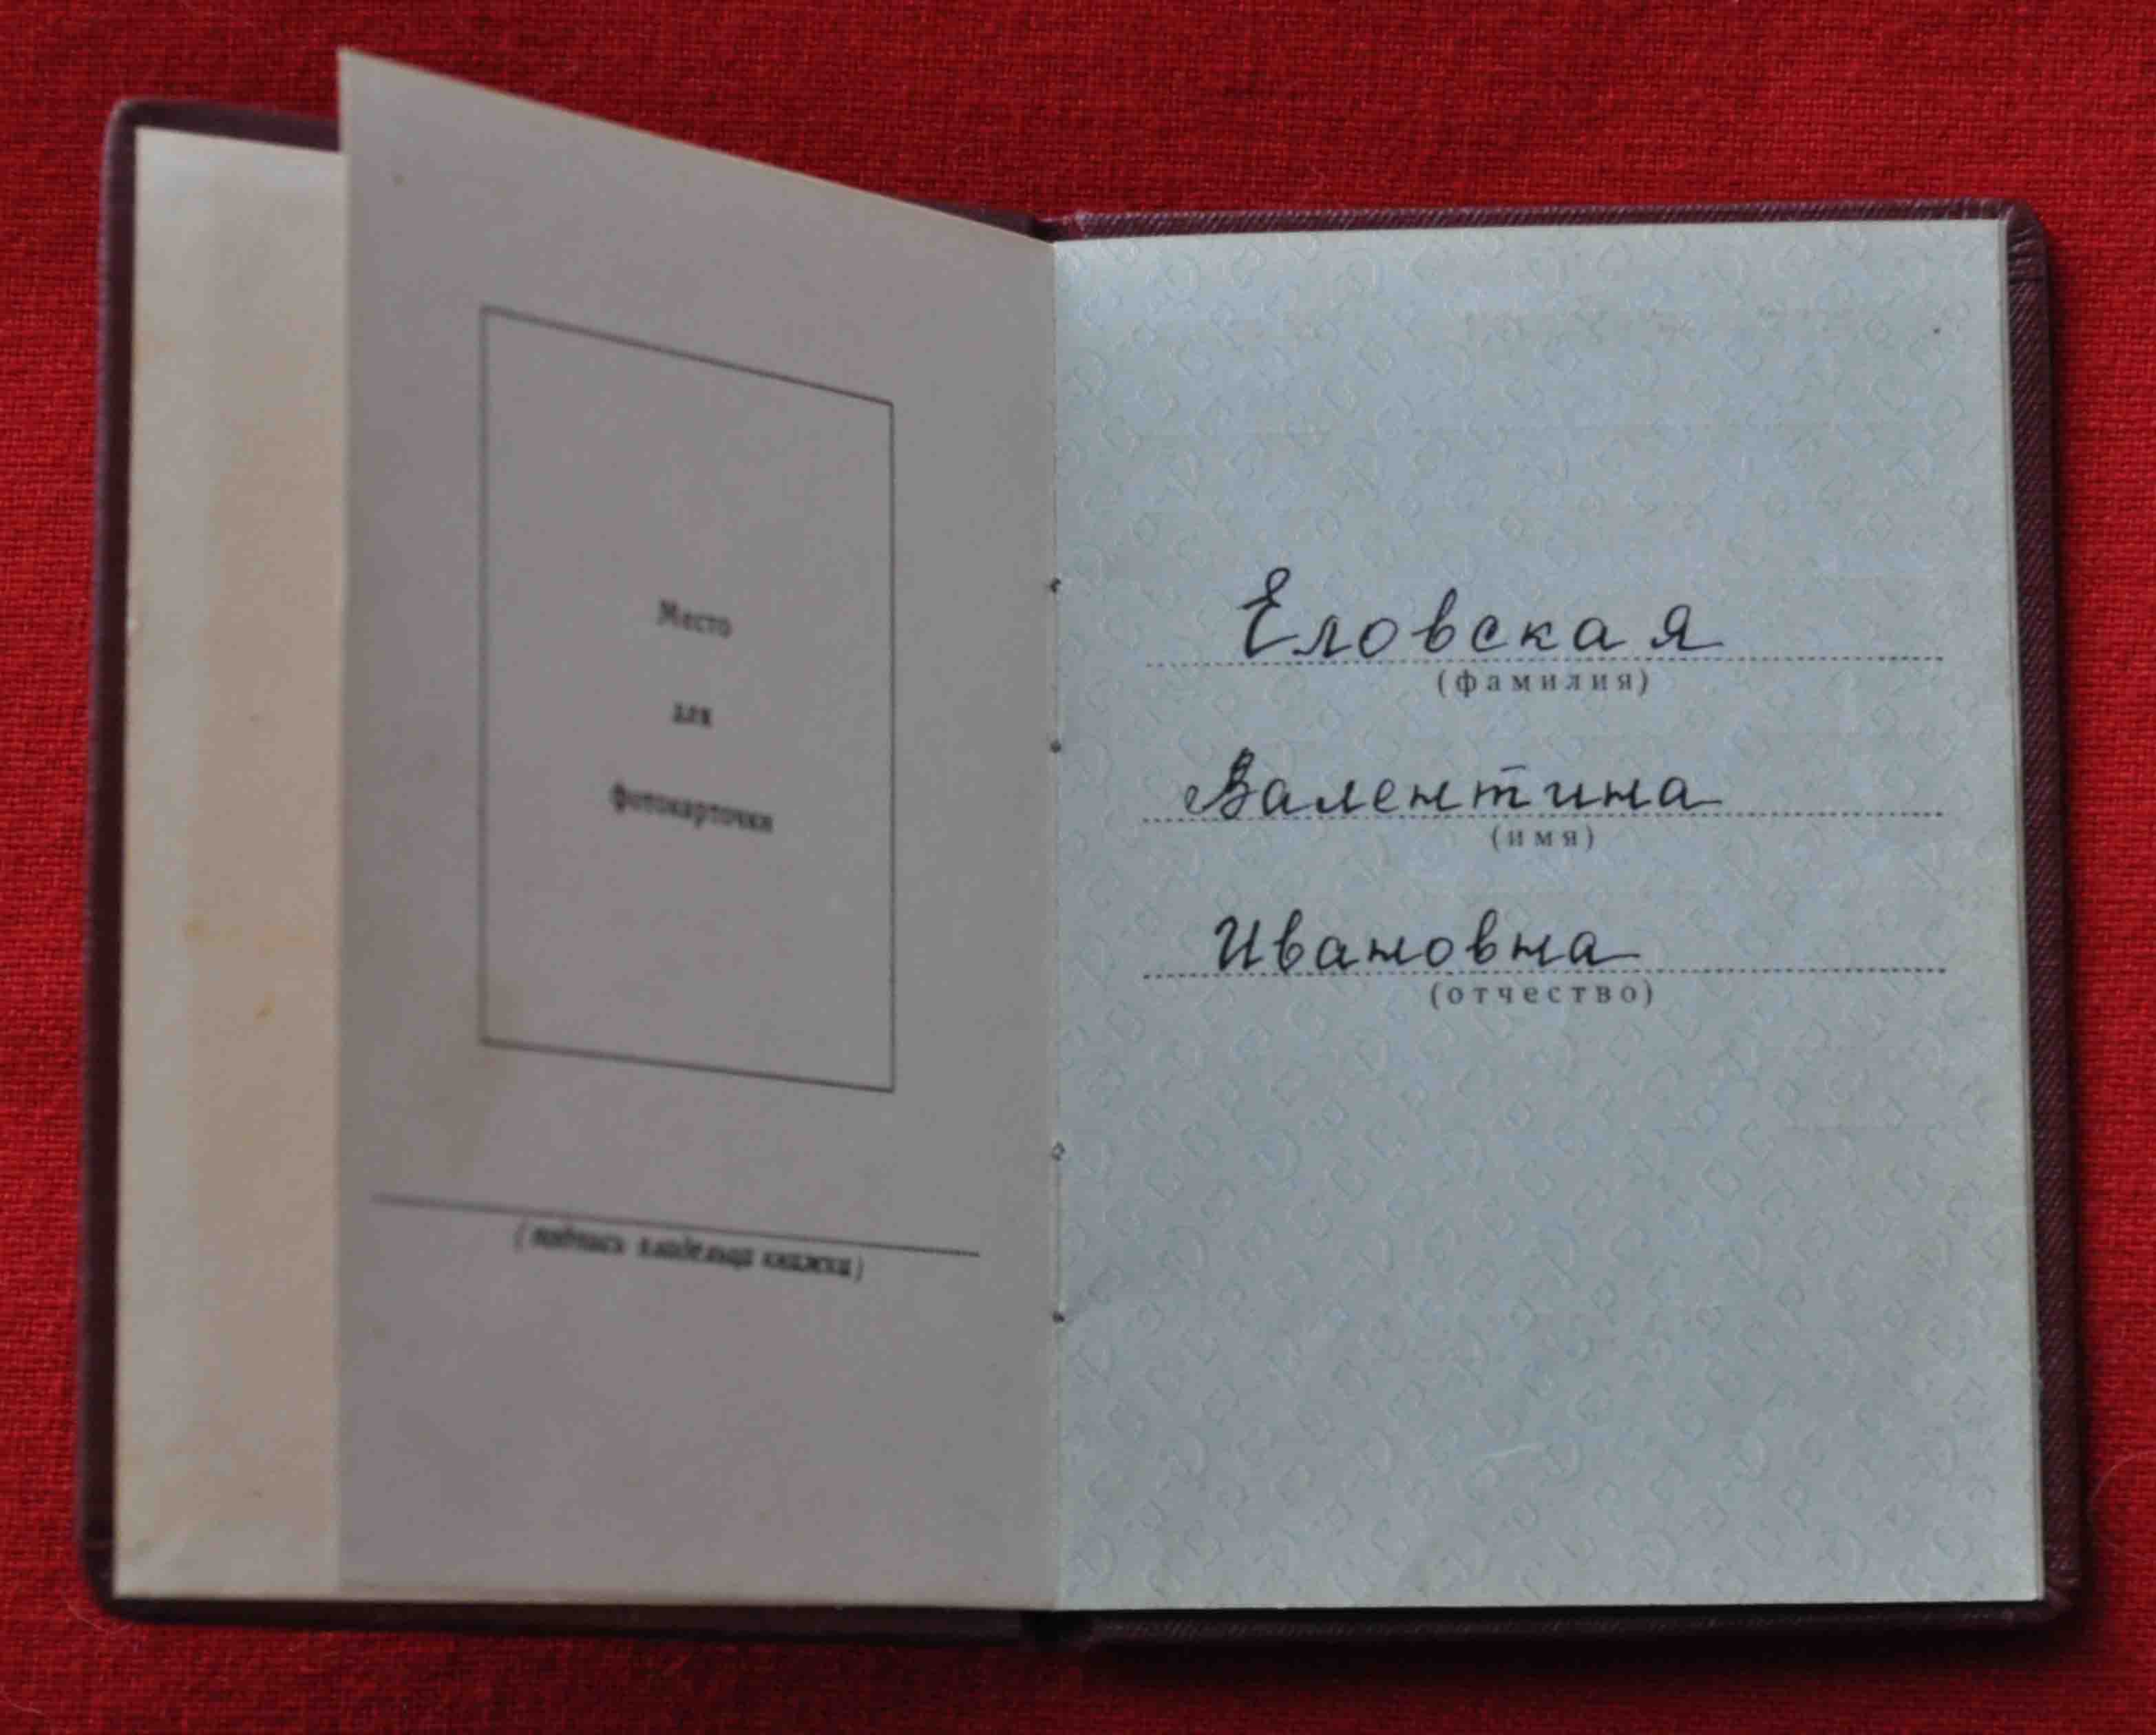 Место
для
фотокарточки
(подпись владельца книжки)
Еловская
(фамилия)
Валентина
(имя)
Ивановна
(отчество)